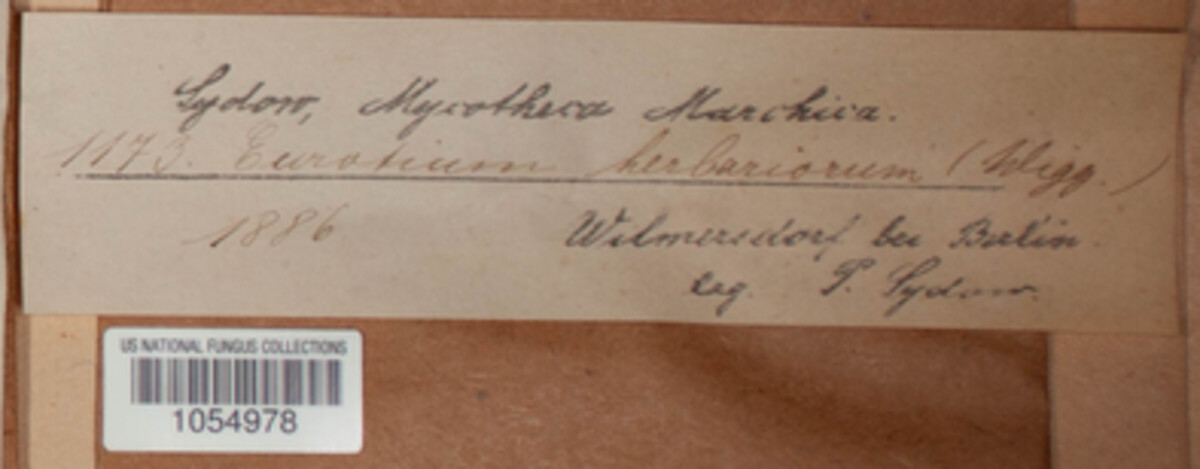 Sydow, Mycotheca Marchica.
1173. Eurotium herbariorum (Wigg.)
1886
Wilmersdorf bei Berlin.
Leg. P. Sydow.
US NATIONAL FUNGUS COLLECTIONS
1054978